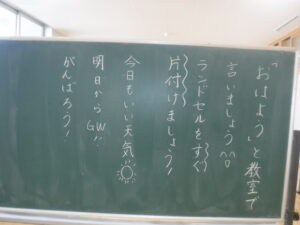 「おはよう」と教室で
言いましょう^^。
ランドセルをすぐ
片付けましょう!
今日もいい天気
明日からGW!!
がんばろう!